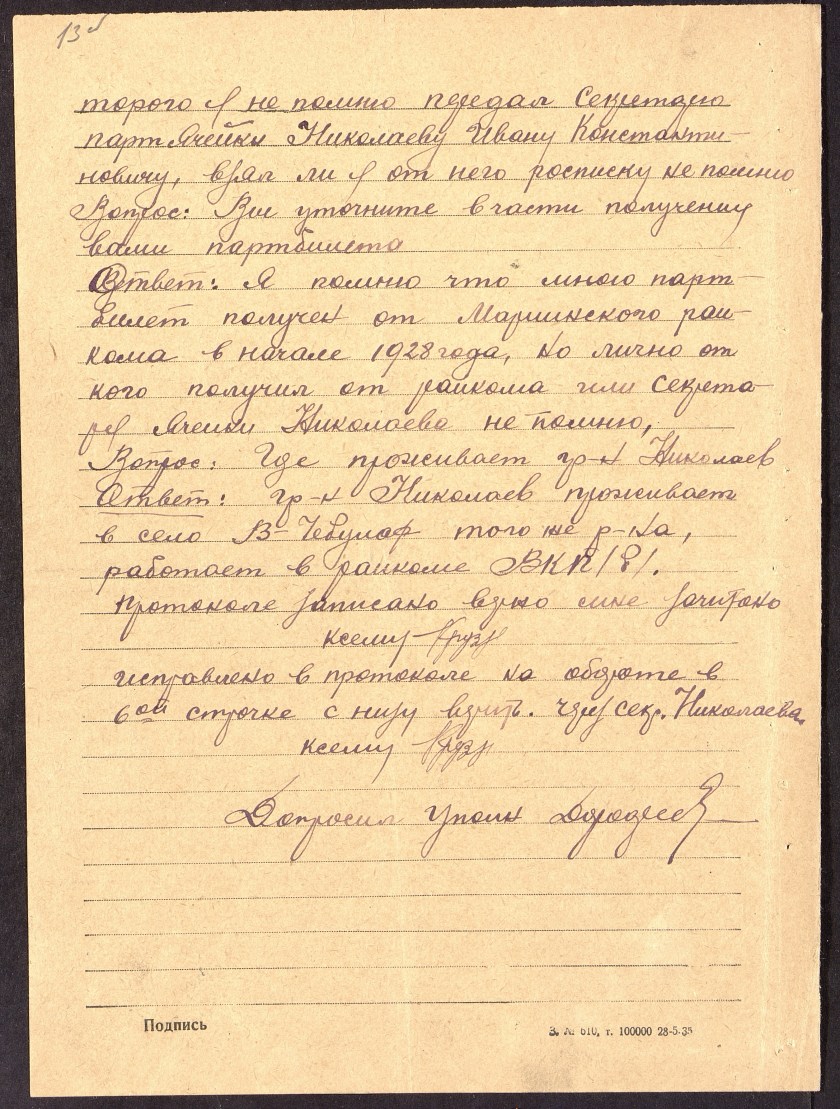 13 об
торого я не помню передал Секретарю
парт Ячейки Николаеву Ивану Константи-
новичу, взял ли я от него росписку не помню
Вопрос: Вы уточните вчасти получения
вами партбилета
Ответ: Я помню что мною парт-
билет получен от Мариинского рай-
кома в начале 1928 года, но лично от
кого получил от райкома или секрета-
ря Ячейки Николаева не помню,
Вопрос: Где проживает гр-н Николаев
Ответ: гр-н Николаев проживает
в село В-Чебула того же р-на,
работает в райкоме ВКП/б/.
Протоколе записано верно мне зачитано
ксему
исправлено в протоколе на обороте в
6ой строчке с низу верить. через секр. Николаева.
ксему
Допросил Уполн
Подпись
З. № 510, т. 100000 28-5-35